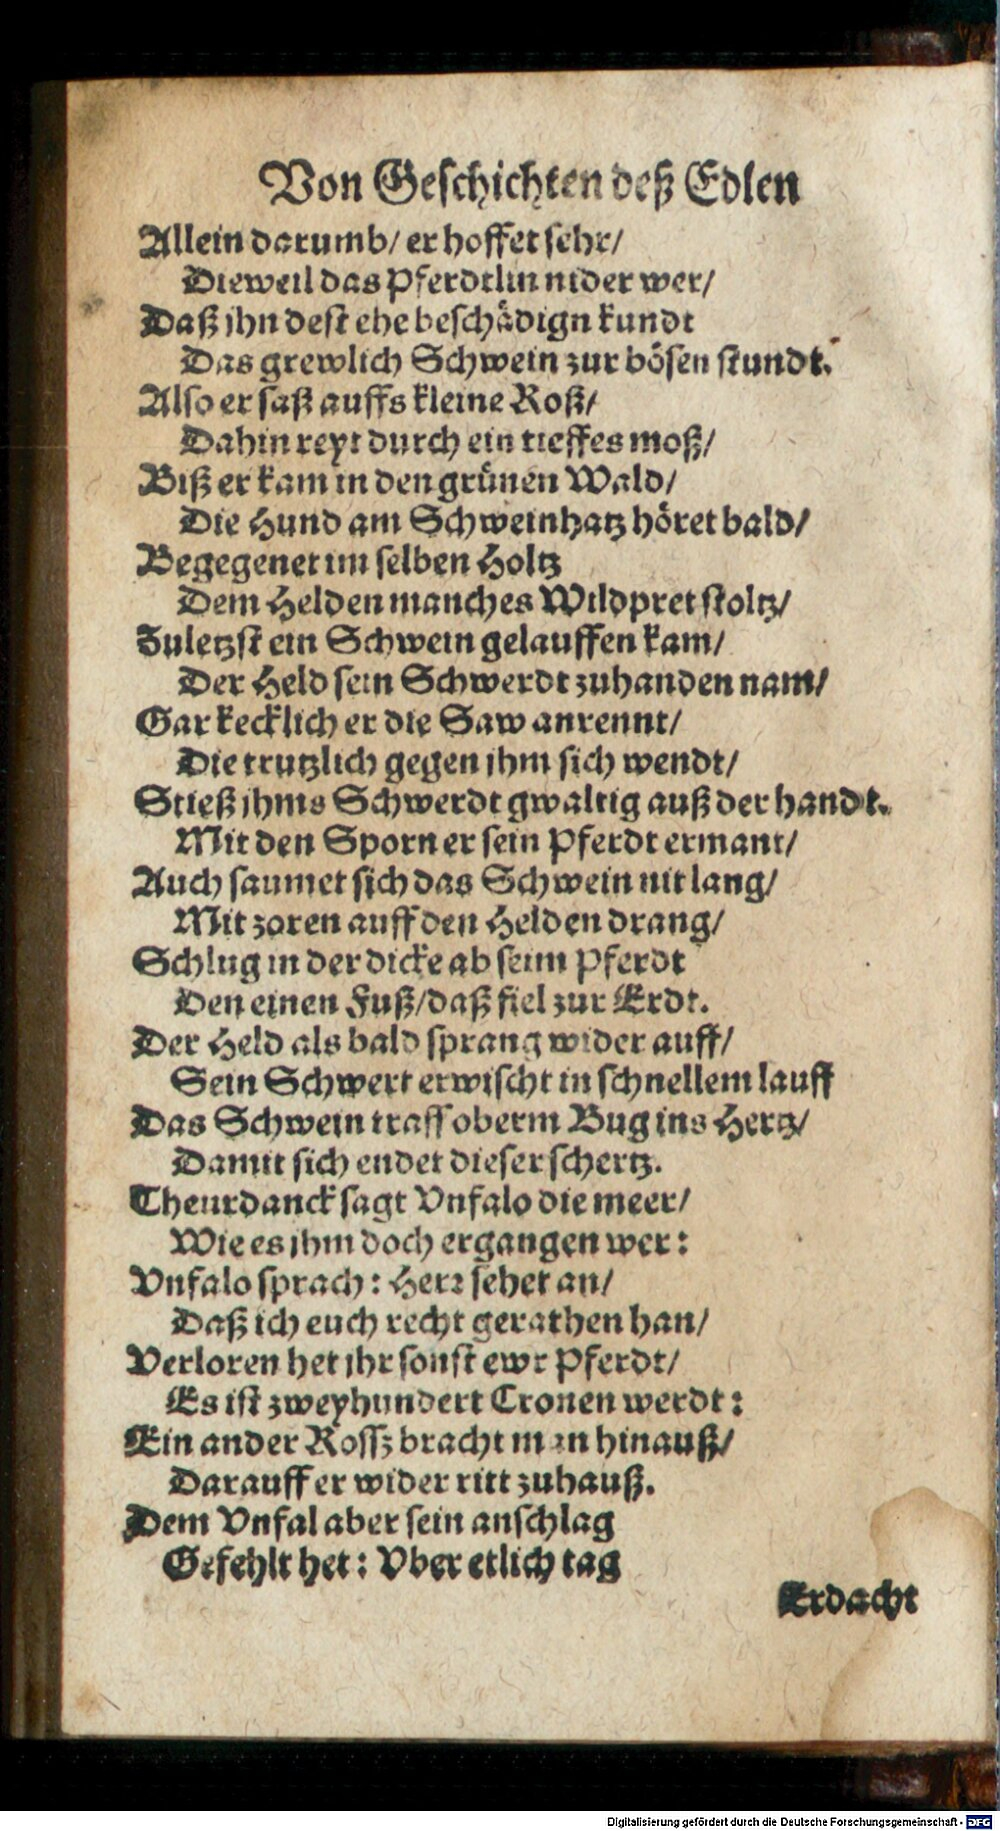 Von Geschichten deß Edlen
Allein darumb/ er hoffet sehr/
Dieweil das Pferdtlin nider wer/
Daß jhn dest ehe beschädign kundt
Das grewlich Schwein zur bösen stundt.
Also er saß auffs kleine Roß/
Dahin reyt durch ein tieffes moß/
Biß er kam in den grünen Wald/
Die Hund am Schweinhatz höret bald/
Begegenet im selben Holtz
Dem Helden manches Wildpret stoltz/
Zuletzst ein Schwein gelauffen kam/
Der Held sein Schwerdt zuhanden nam/
Gar kecklich er die Saw anrennt/
Die trutzlich gegen jhm sich wendt/
Stieß jhms Schwerdt gwaltig auß der handt.
Mit den Sporn er sein Pferdt ermant/
Auch saumet sich das Schwein nit lang/
Mit zoren auff den Helden drang/
Schlug in der dicke ab seim Pferdt
Den einen Fuß/ daß fiel zur Erdt.
Der Held als bald sprang wider auff/
Sein Schwert erwischt in schnellem lauff
Das Schwein traff oberm Bug ins Hertz/
Damit sich endet dieser schertz.
Theurdanck sagt Vnfalo die meer/
Wie es jhm doch ergangen wer:
Vnfalo sprach: Herr sehet an/
Daß ich euch recht gerathen han/
Verloren het jhr sonst ewr Pferdt/
Es ist zweyhundert Cronen werdt:
Ein ander Rossz bracht man hinauß/
Darauff er wider ritt zuhauß.
Dem Vnfal aber sein anschlag
Gefehlt het: Vber etlich tag
Erdacht
Digitalisierung gefördert durch die Deutsche Forschungsgemeinschaft - DFG